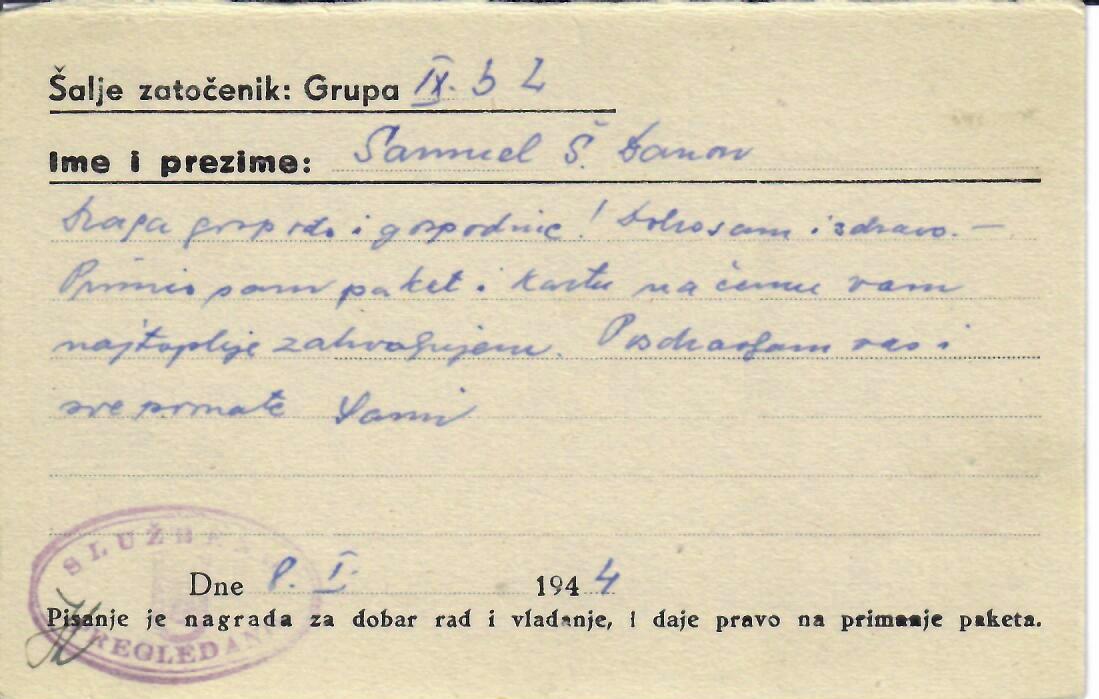 Šalje zatočenik: Grupa IX. b 2
Ime i prezime: Samuel Š. Danon
Draga gospođo i gospodine! Dobro sam i zdravo. —
Primio sam paket i kartu na čemu vam
najtoplije zahvaljujem. Pozdravljam vas i
sve poznate Sami
SLUŽBENO
PREGLEDANO
Dne 8. I. 1944
Pisanje je nagrada za dobar rad i vladanje, i daje pravo na primanje paketa.